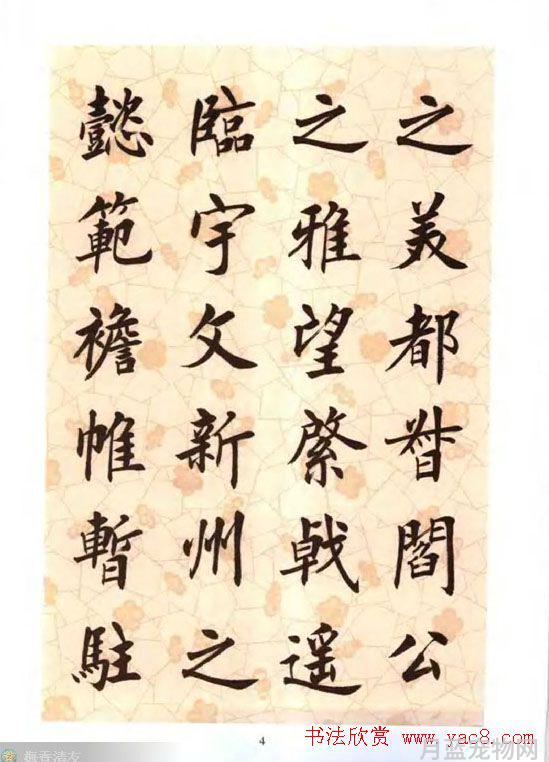 之美都督閻公
之雅望棨戟遥
臨宇文新州之
懿範襜帷暫駐
4
书法欣赏 www.yac8.com
月蓝宠物网
梅香清友